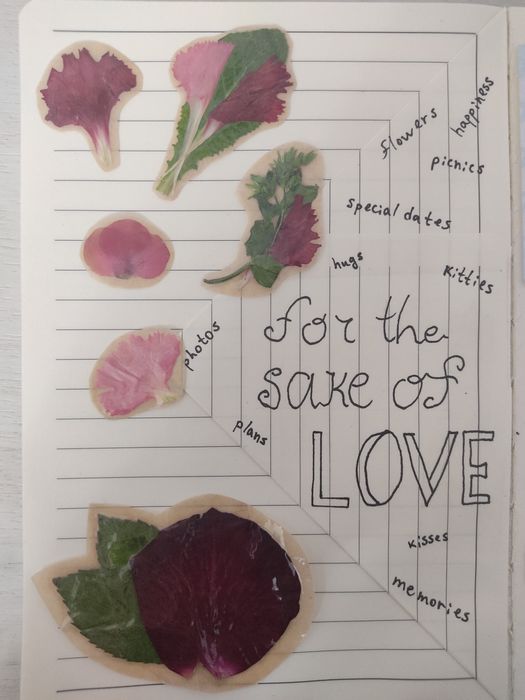 happiness
flowers
picnics
special dates
hugs
Kitties
for the
sake of
LOVE
photos
plans
kisses
memories